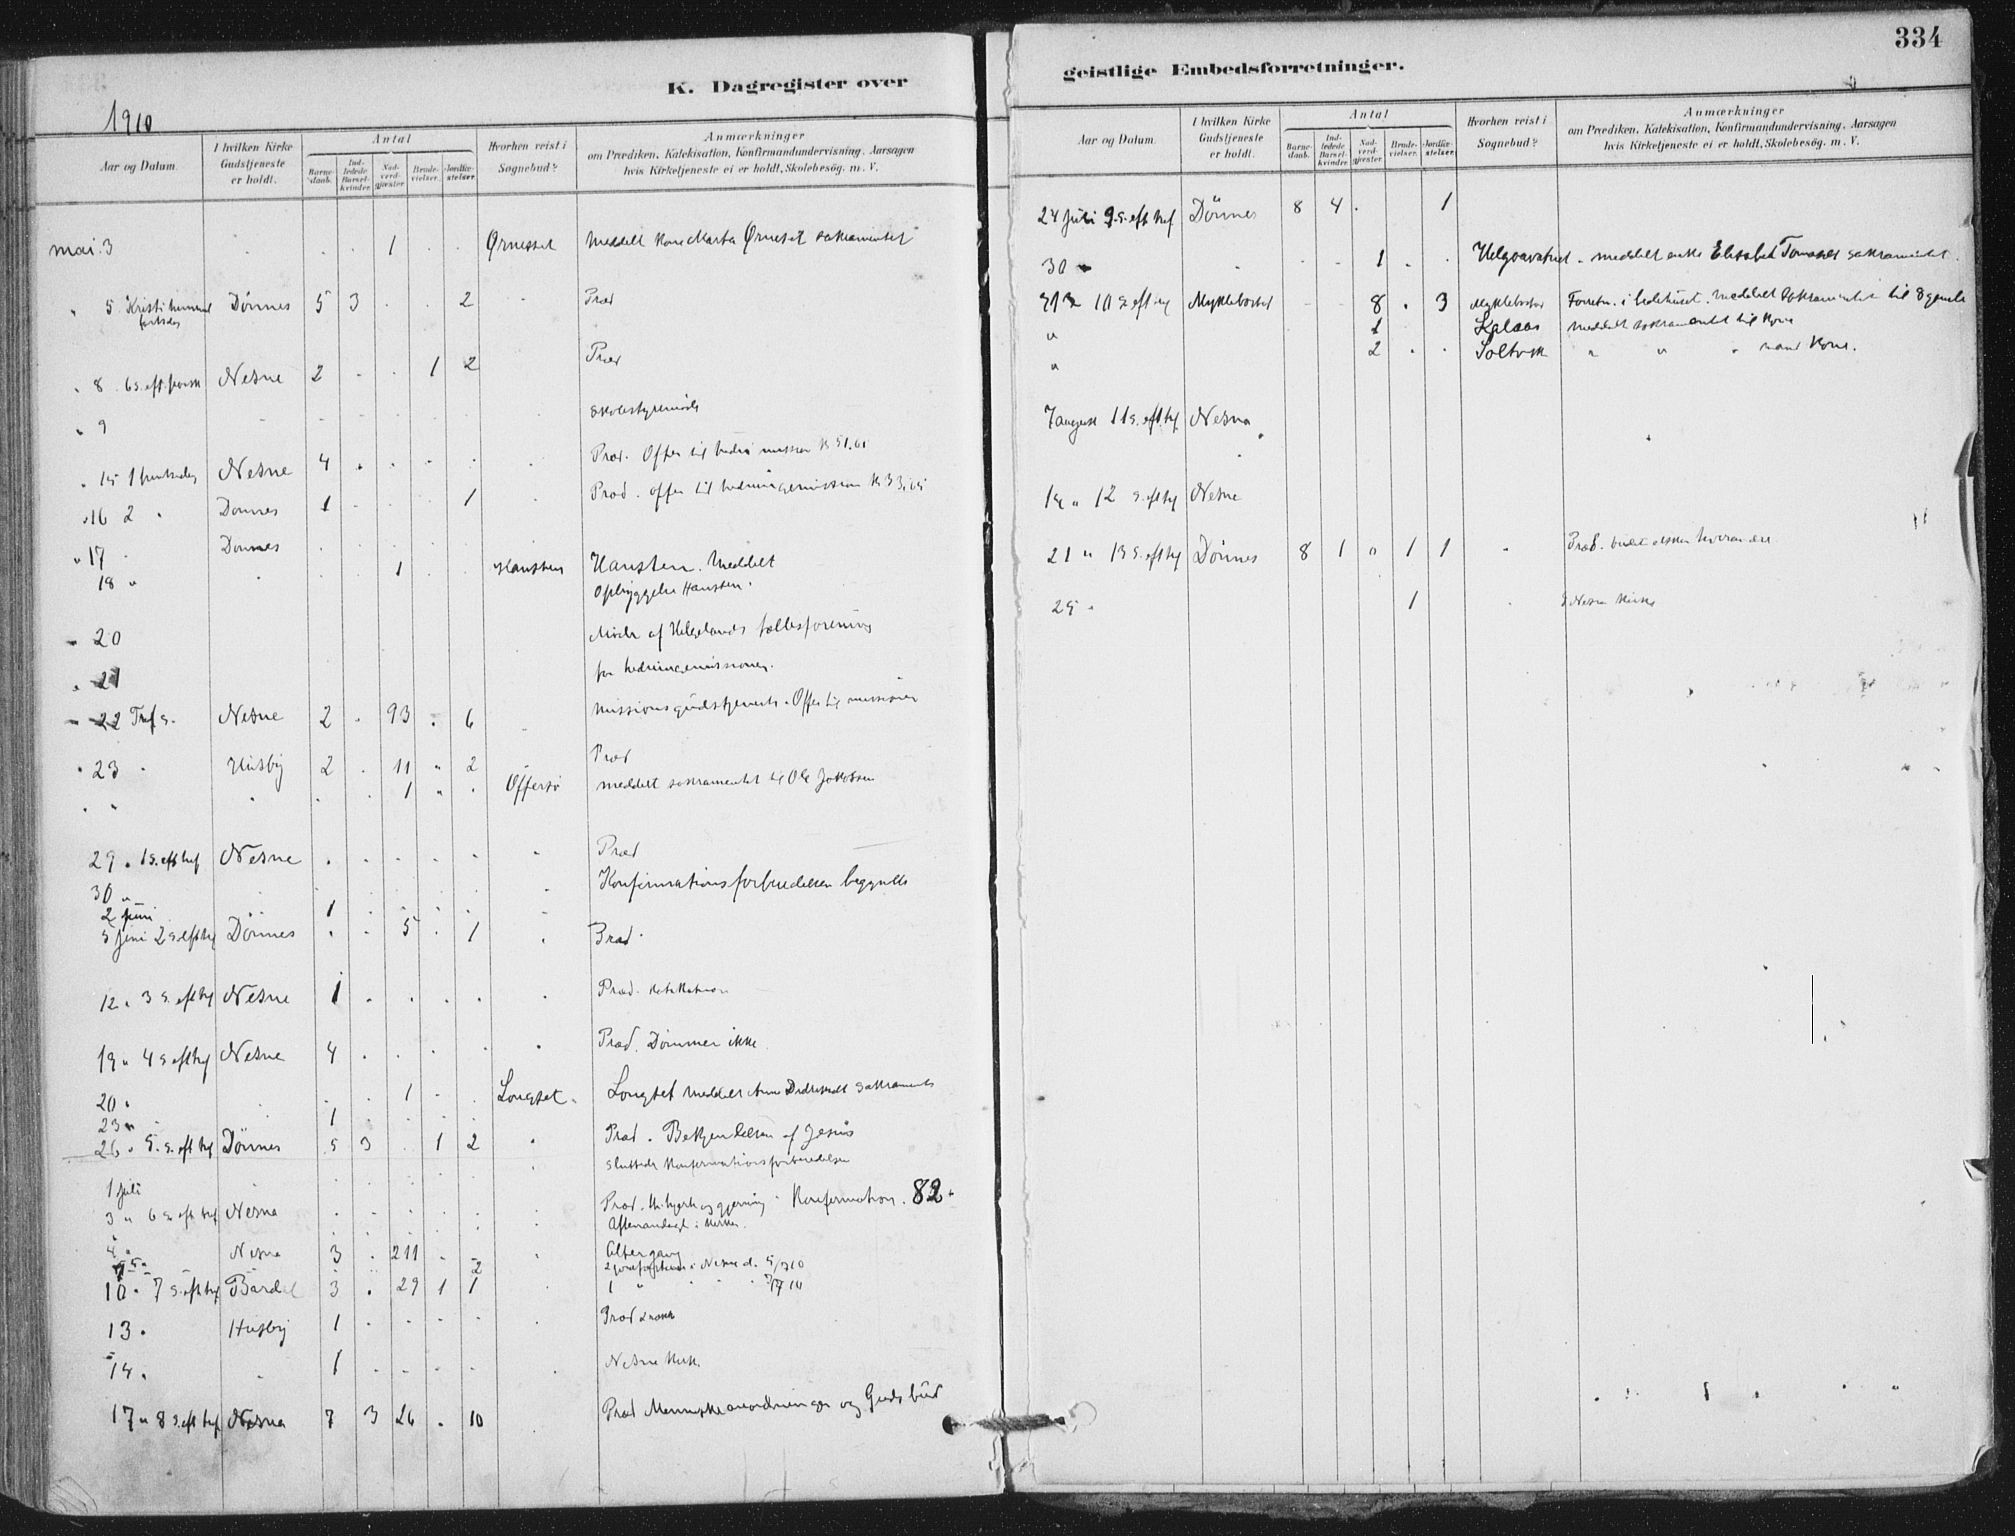 334
K. Dagregister over
geistlige Embedsforretninger.
1910
Aar og Datum. I hvilken Kirke Gudstjeneste er holdt. Antal Barnedaab. Indledede Barselkvinder. Nadverdgjester. Brudevielser. Jordfæstelser. Hvorhen reist i Sognebud? Anmærkninger om Prædiken, Katekisation, Konfirmandundervisning, Aarsagen hvis Kirketjeneste ei er holdt, Skolebesøg. m. V.
mai 3 1 Ørnesset Meddelt Kone Marta Ørneset sakramentet
" 5 Kristi Dønnes 5 3 . . 2 Præd
" 8 6 s. eft. paask Nesne 2 . . 1 2 Præd
" 9 Skolestyremøde
" 15 1 pintsedag Nesne 4 Præd. Offer til indre mission K 51,61
" 16 2 " Dønnes 1 . . . 1 Præd. offer til hedningemission K 33,65
" 17 Dønnes
18 " 1 Hansten Hansten. Meddelt
Opbyggelse Hansten.
" 20 Møde af Helgelands fællesforening
" 21 for hedningemissionen.
" 22 Tref s. Nesne 2 . 93 . 6 Missionsgudstjeneste. Offer til missionen
" 23 " Husby 2 . 11 " 2 Præd
" " 1 " . Offersø meddelt sakramentet til Ole Jakobsen
29 " 1 S. eft tref Nesne Præd
30 " Konfirmationsforberedelsen begyndte
2 juni 1
5 juni 2 s. eft tref Dønnes . . 5 . 1 Præd.
12 " 3 s. eft tref Nesne 1 Præd. Katekisation
19 " 4 s eft tref Nesne 4 Præd. Dømmer ikke
20 " 1 Longset. Longset meddelt Sakramentet
23 " 1
26 " 5. s. eft tref Dønnes 5 3 . 1 2 Præd. Bekjendelsen af Jesus
1 juli Sluttede Konfirmationsforberedelsen
3 " 6 s. eft tref Nesna Præd. og gjerning. Konfirmation. 82.
Aftenandagt i kirken.
4 " Nesna 3 . 211 Altergang
5 " 2 2 i Nesne d. 5/7 10
10 " 7 s. eft tref Bardal 3 . 29 1 1 1 " " " " 7/7 10
13 " Husby 1 Præd
14 " 1 Nesne Kirk.
17 " 8 s. eft tref Nesna 7 3 26 . 10 Præd Menneskeanordninger og Guds bud
Aar og Datum. I hvilken Kirke Gudstjeneste er holdt. Antal Barnedaab. Indledede Barselkvinder. Nadverdgjester. Brudevielser. Jordfæstelser. Hvorhen reist i Sognebud? Anmærkninger om Prædiken, Katekisation, Konfirmandundervisning, Aarsagen hvis Kirketjeneste ei er holdt, Skolebesøg. m. V.
24 juli 9. s. eft tref Dønnes 8 4 . 1
30 " 1 . . meddelt enke Elisabet sakramentet.
31 10 s eft tref Myklebostad 8 . 3 Myklebostad Forretn. i bedehuset. Meddelt Sakramentet til 8 gamle
" 1 Kalaas meddelt sakramentet til Kone
" 2 . . Soltvik " " " mand Kone.
7 august 11 s. eft tref Nesna
14 " 12 s. eft tref Nesne
21 " 13 s. eft tref Dønnes 8 1 " 1 1 Præd. elsken hverandre
25 " 1 I Nesna Kirke